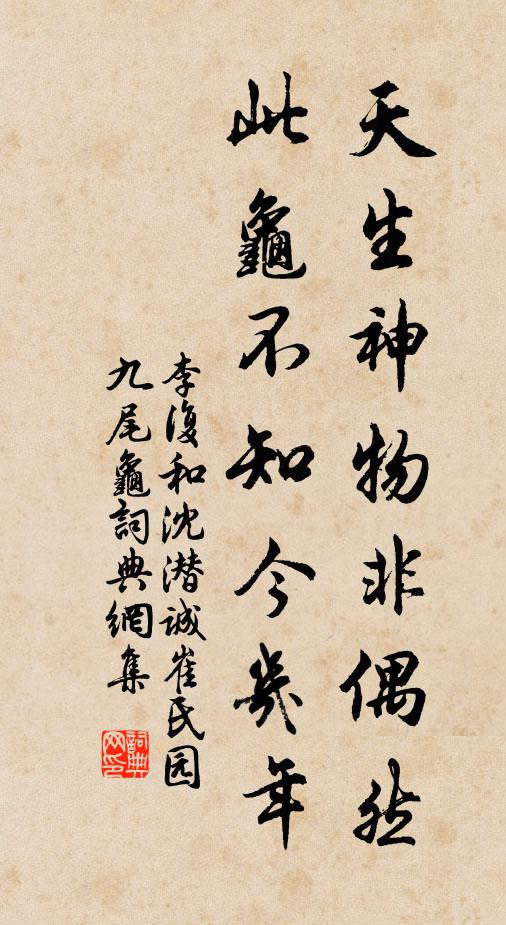 天生神物非偶然
此龜不知今幾年
李復和沈潜诚崔民园
九尾龜詞典網集
詞典
网印